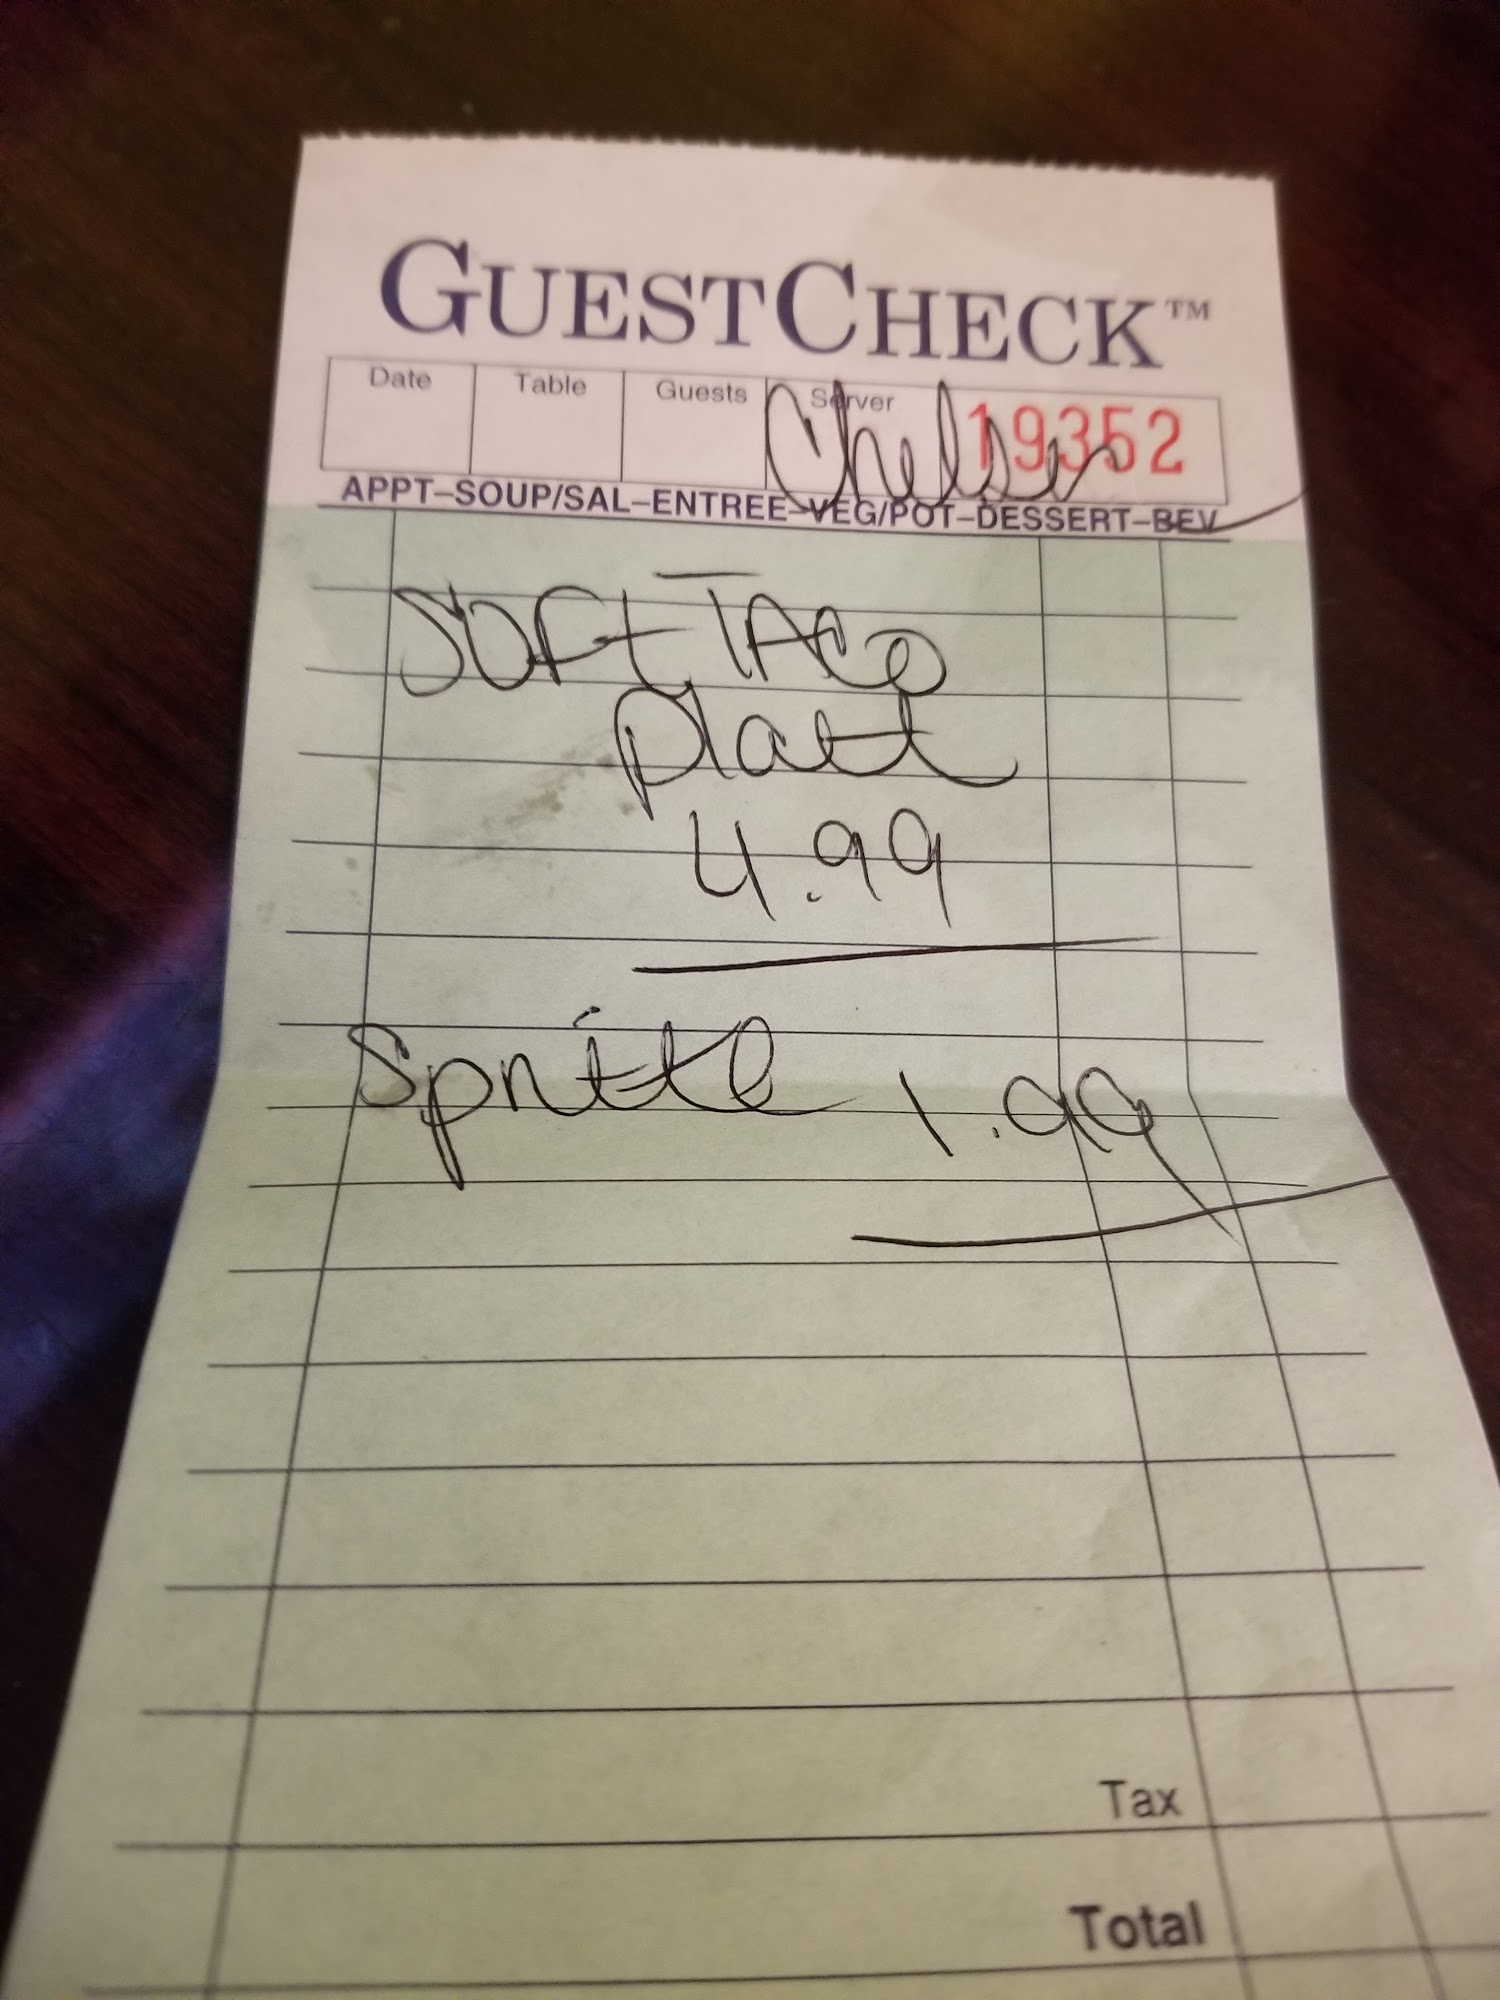 GUESTCHECK™
Date Table Guests Server 19352
Chelsea
APPT–SOUP/SAL–ENTREE–VEG/POT–DESSERT–BEV
SOFt TACO
platt
4.99
Sprite 1.99
Tax
Total